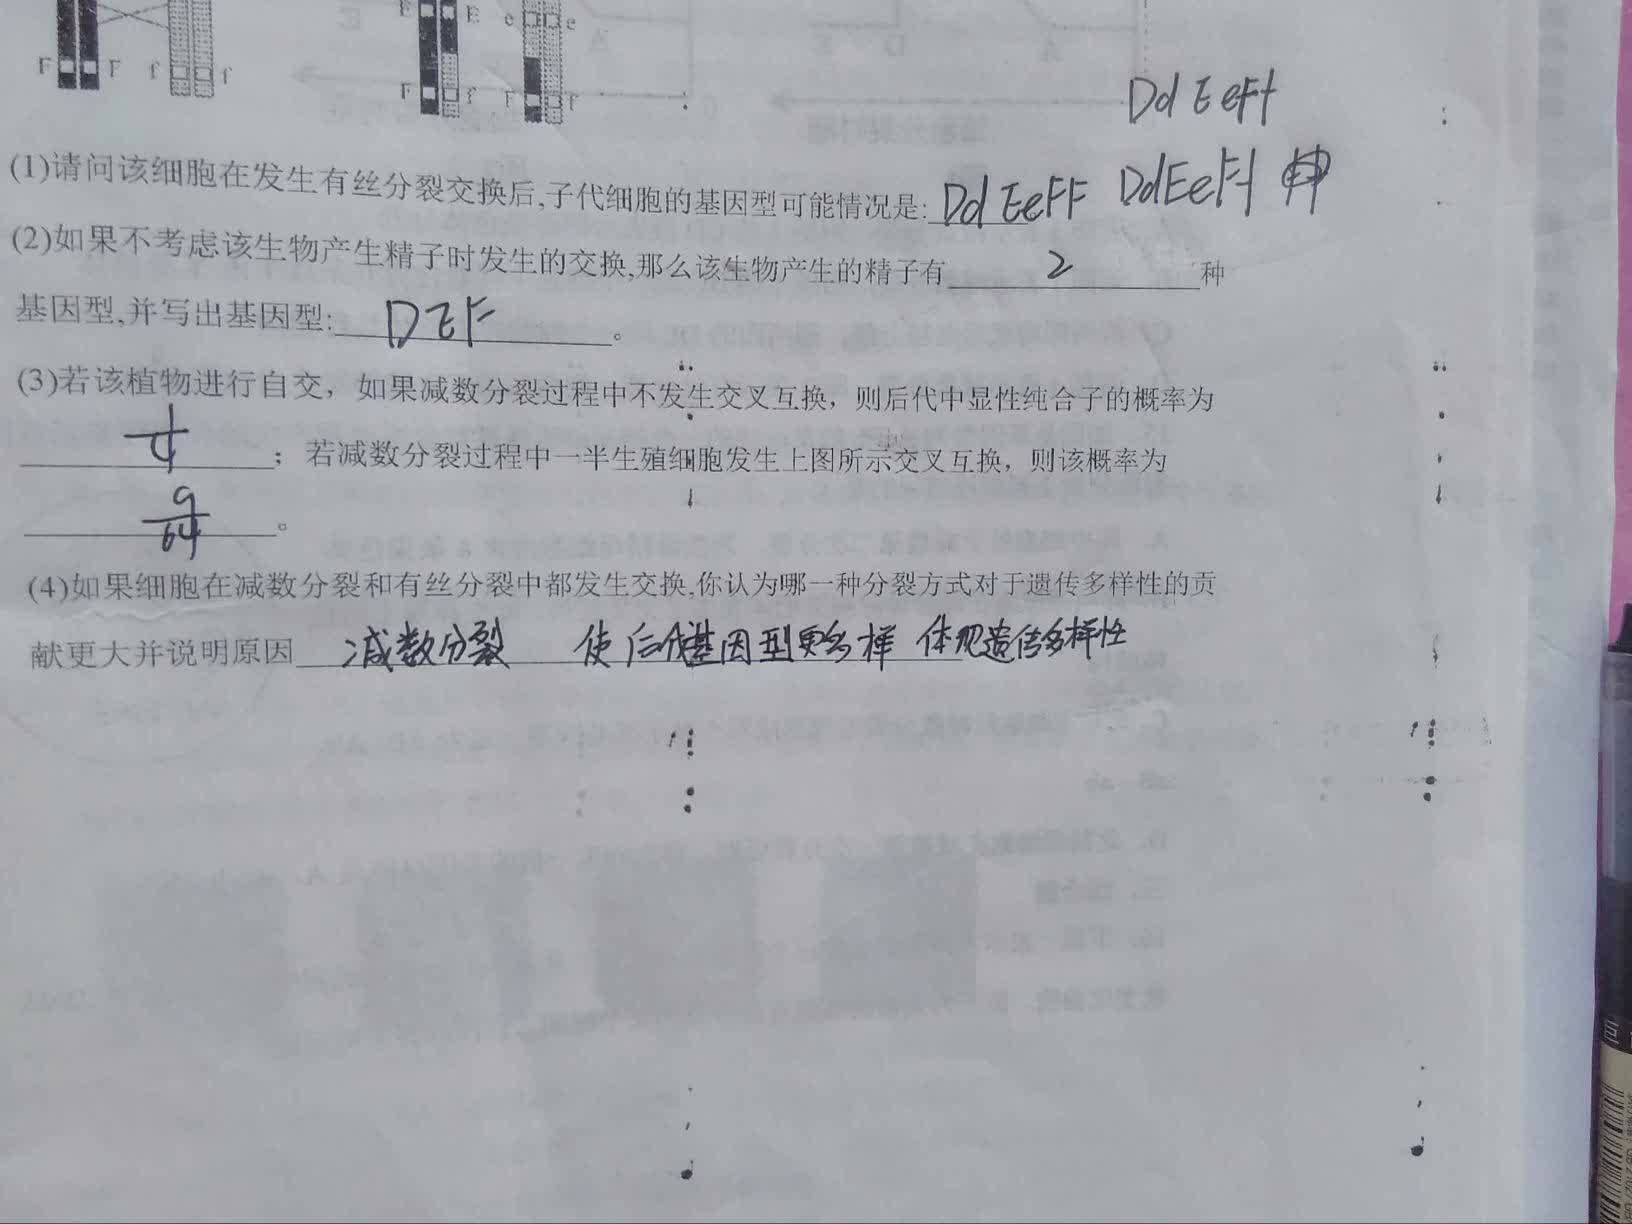 E E e e
F F f f F f F f
DdEeFf
(1)请问该细胞在发生有丝分裂交换后,子代细胞的基因型可能情况是: DdEeFF DdEeFf
(2)如果不考虑该生物产生精子时发生的交换,那么该生物产生的精子有 2 种
基因型,并写出基因型: DEF 。
(3)若该植物进行自交，如果减数分裂过程中不发生交叉互换，则后代中显性纯合子的概率为
1/4 ；若减数分裂过程中一半生殖细胞发生上图所示交叉互换，则该概率为
9/64 。
(4)如果细胞在减数分裂和有丝分裂中都发生交换,你认为哪一种分裂方式对于遗传多样性的贡
献更大并说明原因 减数分裂 使后代基因型更多样 体现遗传多样性